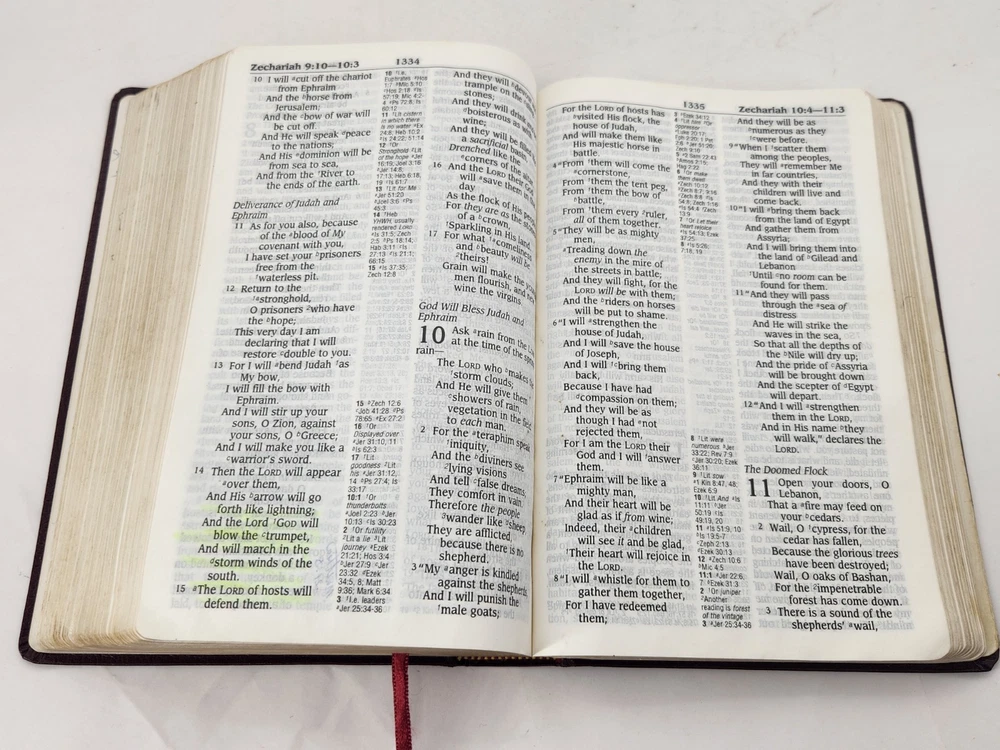 Zechariah 9:10—10:3
1334
10 I will ᵃcut off the chariot
from Ephraim
And the ᵇhorse from
Jerusalem;
And the ᶜbow of war will
be cut off.
And He will speak ᵈpeace
to the nations;
And His ᵉdominion will be
from sea to sea,
And from the ¹River to
the ends of the earth.
Deliverance of Judah and
Ephraim
11 As for you also, because
of the ᵃblood of My
covenant with you,
I have set your ᵇprisoners
free from the
¹waterless pit.
12 Return to the
¹ᵃstronghold,
O prisoners ²who have
the ᵇhope;
This very day I am
declaring that I will
restore ᶜdouble to you.
13 For I will ᵃbend Judah ¹as
My bow,
I will fill the bow with
Ephraim.
And I will stir up your
sons, O Zion, against
your sons, O ᵇGreece;
And I will make you like a
ᶜwarrior's sword.
14 Then the LORD will appear
ᵃover them,
And His ᵇarrow will go
forth like lightning;
And the Lord ¹GOD will
blow the ᶜtrumpet,
And will march in the
ᵈstorm winds of the
south.
15 ᵃThe LORD of hosts will
defend them.
And they will
trample on the
stones;
And they will drink
ᵈboisterous as with
wine;
And they will be filled
a sacrificial basin,
Drenched like the
ᵉcorners of the
16 And the LORD their God
will ᵃsave them in
day
As the flock of His
For they are as the
of a ᵇcrown,
¹Sparkling in His land.
17 For what ¹ᵃcomeliness
and ᵇbeauty will be
²theirs!
Grain will make the
men flourish, and
wine the virgins.
God Will Bless Judah and
Ephraim
10 Ask ᵃrain from the
at the time of the
rain—
The LORD who ᵇmakes
¹storm clouds;
And He will give them
ᶜshowers of rain,
vegetation in the
to each man.
2 For the ᵃteraphim speak
¹iniquity,
And the ᵇdiviners see
²lying visions
And tell ᶜfalse dreams;
They comfort in vain.
Therefore the people
³wander like ᵈsheep,
They are afflicted,
because there is no
shepherd.
3 "My ᵃanger is kindled
against the shepherds,
And I will punish the
¹male goats;
15 ᵃZech 12:6
ᵇJob 41:28 ᶜPs
78:65 ᵈEx 27:2
16 ¹Or
Displayed over
ᵃJer 31:10, 11
ᵇIs 62:3
17 ¹Lit
goodness ²Lit
his ᵃJer 31:12,
14 ᵇPs 27:4; Is
33:17
10:1 ¹Or
thunderbolts
ᵃJoel 2:23 ᵇJer
10:13 ᶜIs 30:23
2 ¹Or futility
²Lit a lie ³Lit
journey ᵃEzek
21:21; Hos 3:4
ᵇJer 27:9 ᶜJer
23:32 ᵈEzek
34:5, 8; Matt
9:36; Mark 6:34
3 ¹I.e. leaders
ᵃJer 25:34-36
1335
Zechariah 10:4—11:3
For the LORD of hosts has
ᵇvisited His flock, the
house of Judah,
And will make them like
His majestic horse in
battle.
4 "From ¹them will come the
ᵃcornerstone,
From ¹them the tent peg,
From ¹them the bow of
ᵇbattle,
From ¹them every ²ruler,
all of them together.
5 "They will be as mighty
men,
ᵃTreading down the
enemy in the mire of
the streets in battle;
And they will fight, for the
LORD will be with them;
And the ᵇriders on horses
will be put to shame.
6 "I will ᵃstrengthen the
house of Judah,
And I will ᵇsave the house
of Joseph,
And I will ¹ᶜbring them
back,
Because I have had
ᵈcompassion on them;
And they will be as
though I had ᵉnot
rejected them,
For I am the LORD their
God and I will ᶠanswer
them.
7 "Ephraim will be like a
mighty man,
And their heart will be
glad as if from wine;
Indeed, their ᵃchildren
will see it and be glad,
¹Their heart will rejoice in
the LORD.
8 "I will ᵃwhistle for them to
gather them together,
For I have redeemed
them;
And they will be as
ᵇnumerous as they
¹were before.
9 "When I ¹scatter them
among the peoples,
They will ᵃremember Me
in far countries,
And they with their
children will live and
come back.
10 "I will ᵃbring them back
from the land of Egypt
And gather them from
Assyria;
And I will bring them into
the land of ᵇGilead and
Lebanon
¹Until no room can be
found for them.
11 "And they will pass
through the ᵃsea of
distress
And He will strike the
waves in the sea,
So that all the depths of
the ᵇNile will dry up;
And the pride of ᶜAssyria
will be brought down
And the scepter of ᵈEgypt
will depart.
12 "And I will ᵃstrengthen
them in the LORD,
And in His name ᵇthey
will walk," declares the
LORD.
The Doomed Flock
11 Open your doors, O
Lebanon,
That a ᵃfire may feed on
your ᵇcedars.
2 Wail, O ¹cypress, for the
cedar has fallen,
Because the glorious trees
have been destroyed;
Wail, O oaks of Bashan,
For the ²impenetrable
forest has come down.
3 There is a sound of the
shepherds' ᵃwail,
8 ¹Lit were
numerous ᵃJer
33:22; Rev 7:9
9 ¹Lit sow
10 ¹Lit And
11 ᵃIs 51:9, 10
ᵇIs 19:5-7
ᶜZeph 2:13
ᵈEzek 30:13
12 ᵃZech 10:6
ᵇMic 4:5
11:1 ᵃJer 22:6,
7 ᵇEzek 31:3
2 ¹Or juniper
²Another
reading is forest
of the vintage
3 ᵃJer 25:34-36